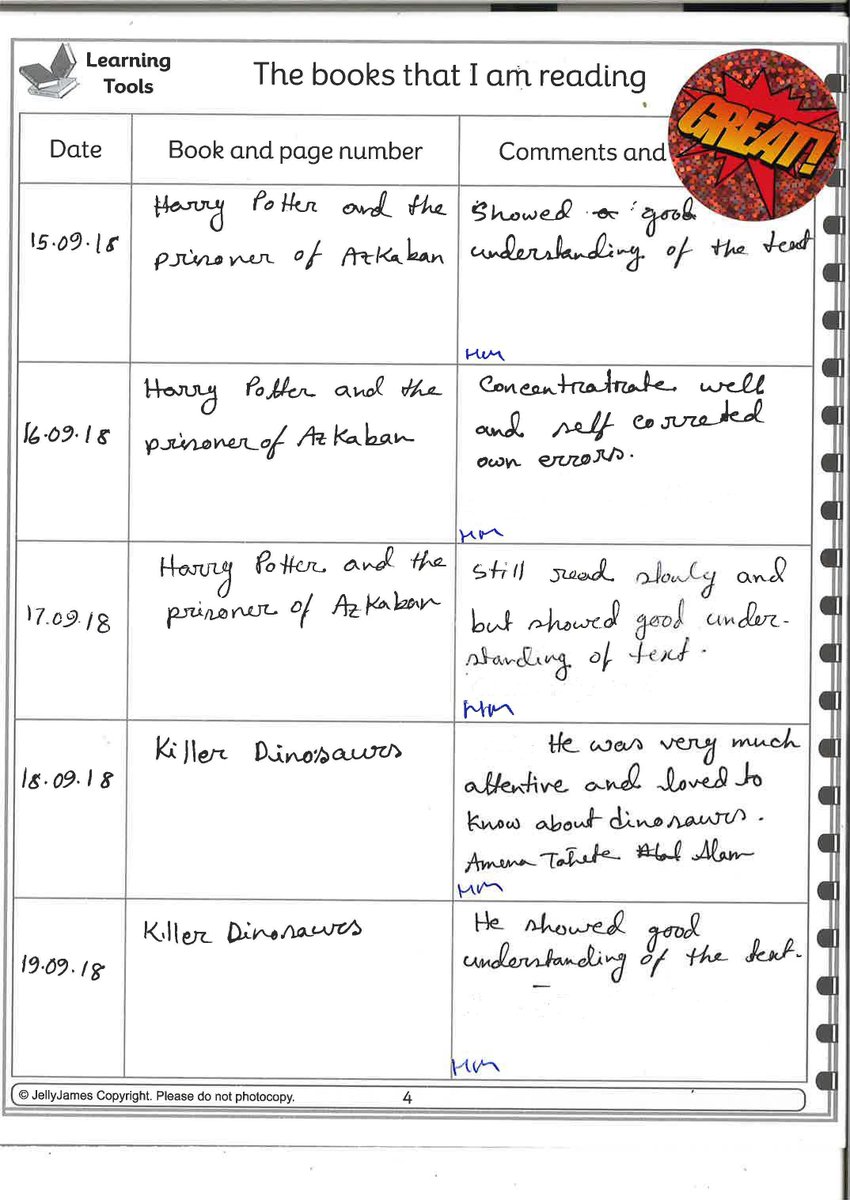 Learning
Tools
The books that I am reading
GREAT!
Date
Book and page number
Comments and
15.09.18
Harry Potter and the
prisoner of Azkaban
Showed a good
understanding of the text
HM
16.09.18
Harry Potter and the
prisoner of Azkaban
Concentratrate well
and self correted
own errors.
HM
17.09.18
Harry Potter and the
prisoner of Azkaban
Still read slowly and
but showed good under-
standing of text.
HM
18.09.18
Killer Dinosaurs
He was very much
attentive and loved to
know about dinosaurs.
Amena Alam
HM
19.09.18
Killer Dinosaurs
He showed good
understanding of the text.
HM
© JellyJames Copyright. Please do not photocopy.
4